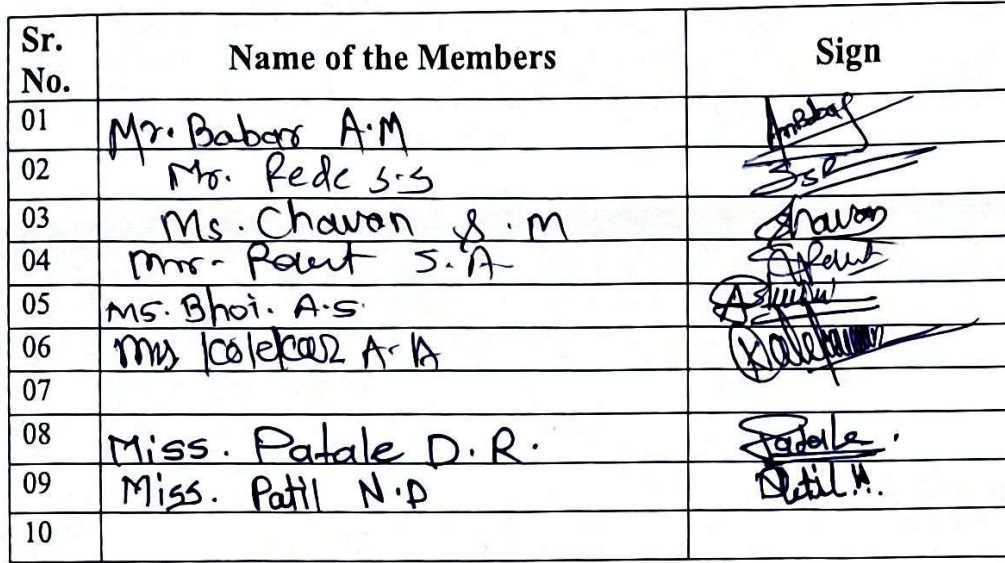 Sr. No. Name of the Members Sign
01 Mr. Babar A.M AmBabar
02 Mr. Rede S.S SSR
03 Ms. Chavan S.M Chavan
04 Mr. Raut S.A SARaut
05 Ms. Bhoi. A.S.
06 Kolekar A.A Kolekar
07
08 Miss. Patale D.R. Patale.
09 Miss. Patil N.D Patil N.
10